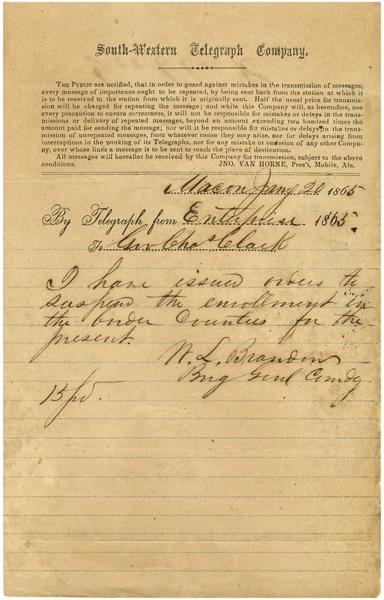 South-Western Telegraph Company.
THE PUBLIC are notified, that in order to guard against mistakes in the transmission of messages,
every message of importance ought to be repeated, by being sent back from the station at which it
is to be received to the station from which it is originally sent. Half the usual price for transmis-
sion will be charged for repeating the message; and while this Company will, as heretofore, use
every precaution to ensure correctness, it will not be responsible for mistakes or delays in the trans-
missions or delivery of repeated messages, beyond an amount exceeding two hundred times the
amount paid for sending the message; nor will it be responsible for mistakes or delays in the trans-
mission of unrepeated messages, from whatever cause they may arise, nor for delays arising from
interruptions in the working of its Telegraphs, nor for any mistake or omission of any other Company,
over whose lines a message is to be sent to reach the place of destination.
All messages will hereafter be received by this Company for transmission, subject to the above
conditions.
JNO. VAN HORNE, Pres't, Mobile, Ala.
Macon Jany 20 1865
By Telegraph from Enterprise 1865.
To Gov Chas Clark
I have issued orders to
suspend the enrollment in
the border counties for the
present
W. L. Brandon
Brig Genl Comdg
15/pd